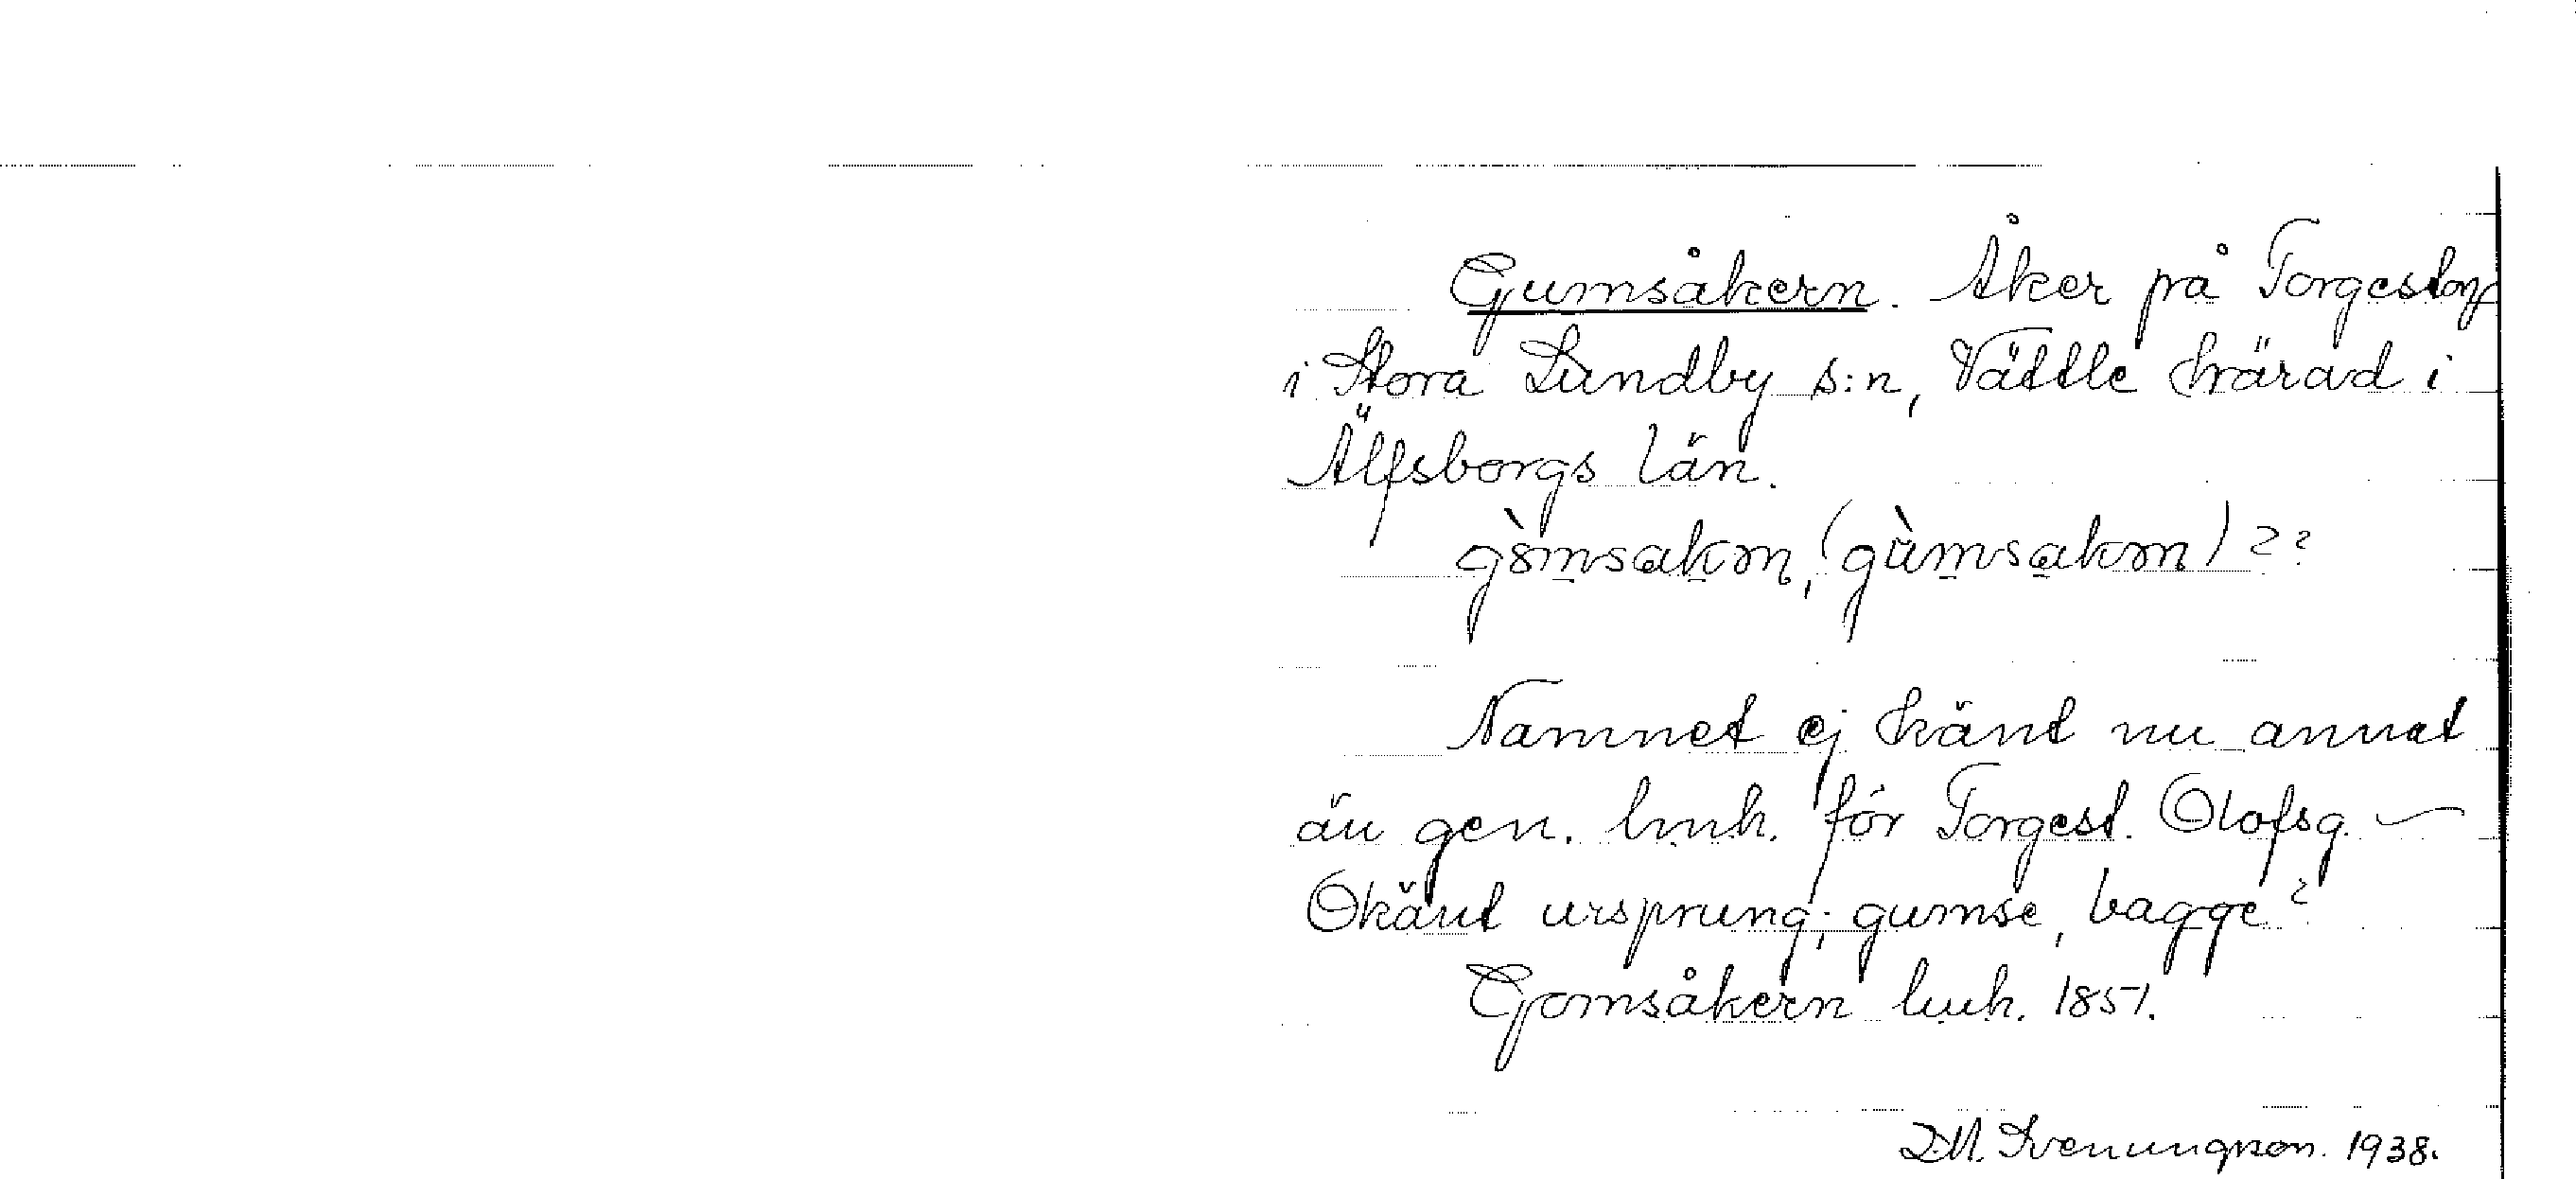 Gumsåkern. Åker på Torgestorp
i Stora Lundby s:n, Vättle härad i
Älfsborgs län.
(
) ??
Namnet ej känt nu annat
än gen. lmh. för Torgest. Olofsg. –
Okänt ursprung; gumse, bagge?
Gomsåkern lmh. 1851.
D.M. Svenungson. 1938.